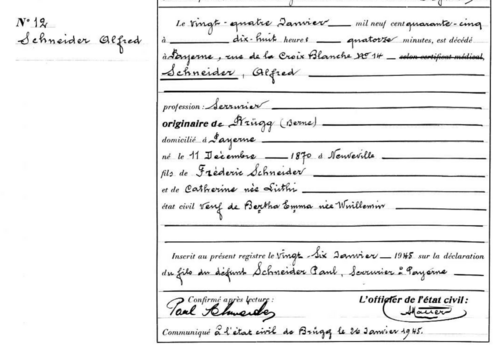 N° 12
Schneider Alfred
Le vingt-quatre Janvier mil neuf cent quarante-cinq
à dix-huit heures quatorze minutes, est décédé
à Payerne, rue de la Croix Blanche N° 14 selon certificat médical,
Schneider, Alfred
profession: Serrurier
originaire de Brügg (Berne)
domicilié à Payerne
né le 11 Décembre 1870 à Neuveville
fils de Fréderic Schneider
et de Catherine née Lüthi
état civil veuf de Bertha Emma née Wuillemin
Inscrit au présent registre le vingt-six Janvier 1945 sur la déclaration
du fils du défunt Schneider Paul, serrurier à Payerne
Confirmé après lecture: L'officier de l'état civil:
Paul Schneider
Communiqué à l'état civil de Brügg le 26 Janvier 1945.